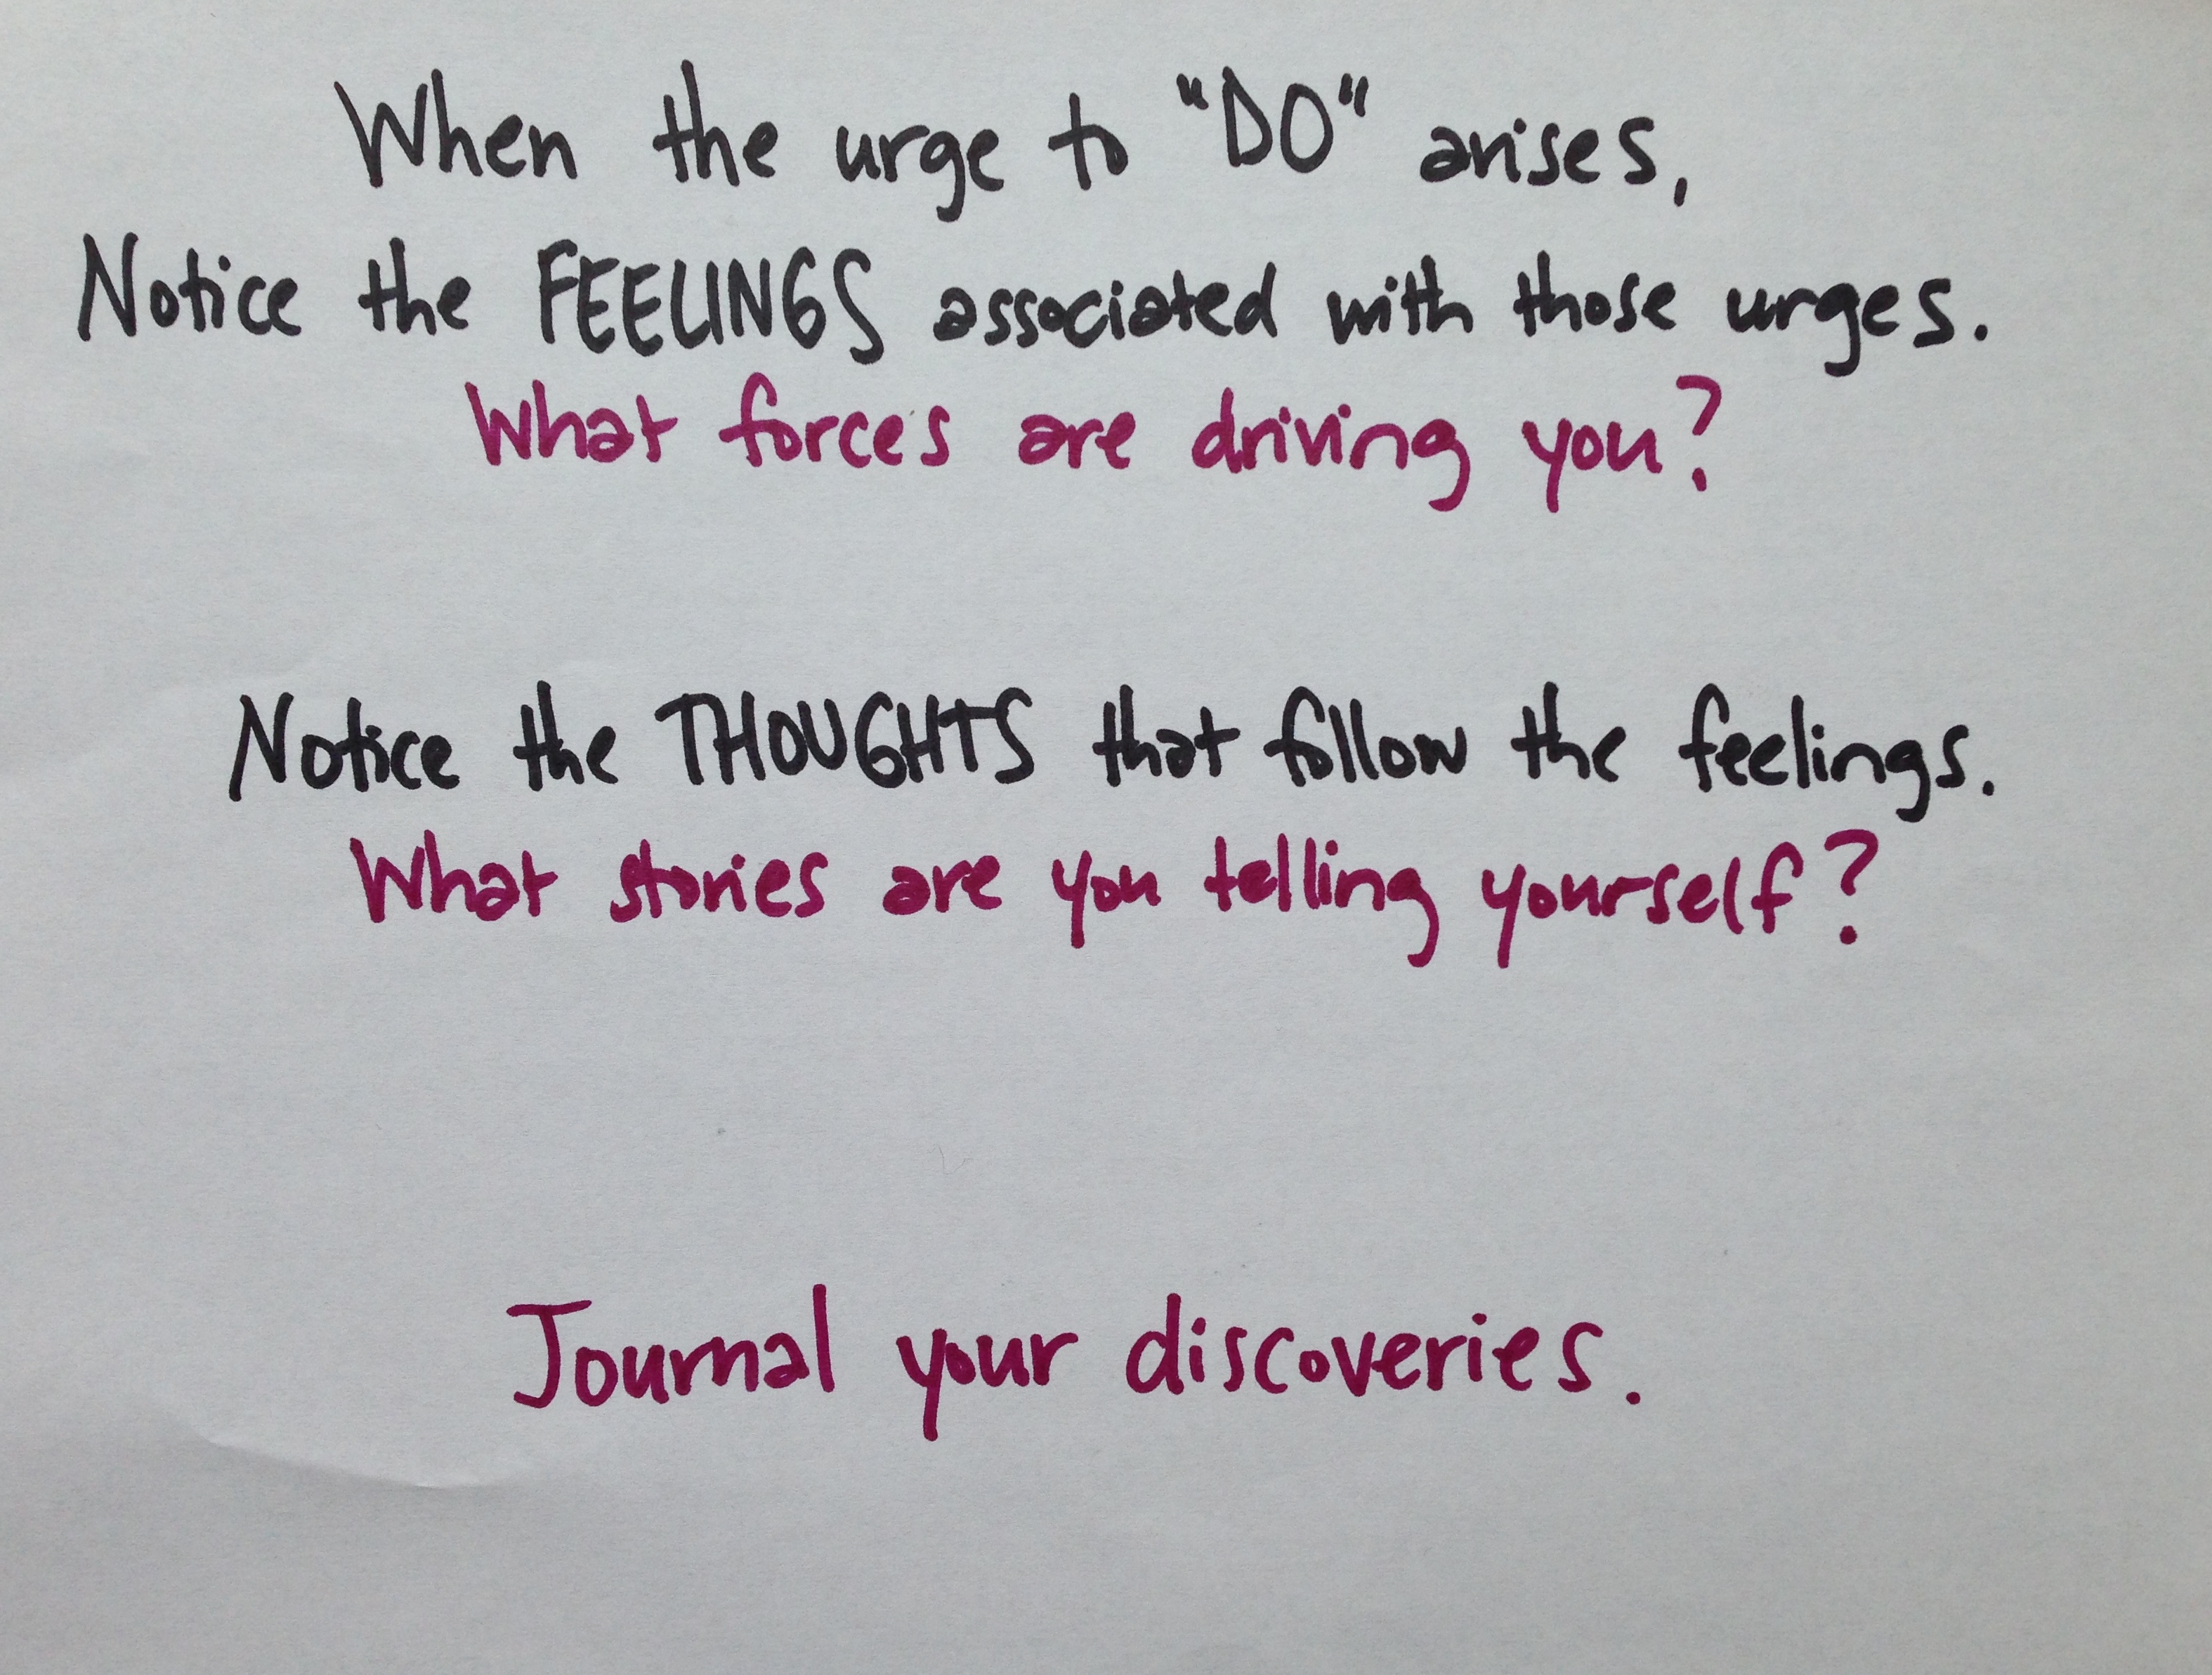 When the urge to "DO" arises,
Notice the FEELINGS associated with those urges.
What forces are driving you?
Notice the THOUGHTS that follow the feelings.
What stories are you telling yourself?
Journal your discoveries.